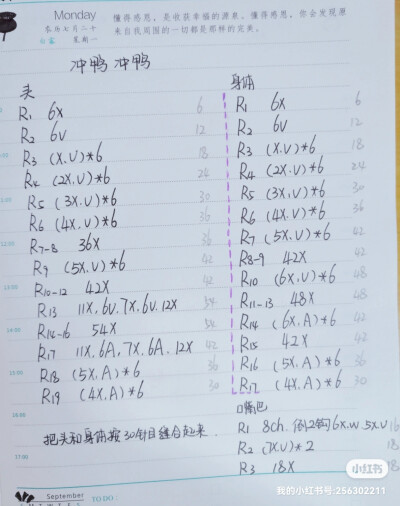 Monday
农历七月二十
白露 星期一
懂得感恩，是收获幸福的源泉。懂得感恩，你会发现原
来自我周围的一切都是那样的完美。
冲鸭 冲鸭
头
R1 6X 6
R2 6V 12
R3 (X.V)*6 18
R4 (2X.V)*6 24
R5 (3X.V)*6 30
R6 (4X.V)*6 36
R7-8 36X 36
R9 (5X.V)*6 42
R10-12 42X 42
R13 11X.6V.7X.6V.12X 54
R14-16 54X 54
R17 11X.6A.7X.6A.12X 42
R18 (5X.A)*6 36
R19 (4X.A)*6 30
把头和身体按30针目缝合起来.
身体
R1 6X 6
R2 6V 12
R3 (X.V)*6 18
R4 (2X.V)*6 24
R5 (3X.V)*6 30
R6 (4X.V)*6 36
R7 (5X.V)*6 42
R8-9 42X 42
R10 (6X.V)*6 48
R11-13 48X 48
R14 (6X.A)*6 42
R15 42X 42
R16 (5X.A)*6 36
R17 (4X.A)*6 30
嘴巴
R1 8ch.倒2钩6X.W.5X.V 16
R2 (7X.V)*2 18
R3 18X 18
12:00
13:00
14:00
15:00
16:00
17:00
September
TO DO:
小红书
我的小红书号:256302211